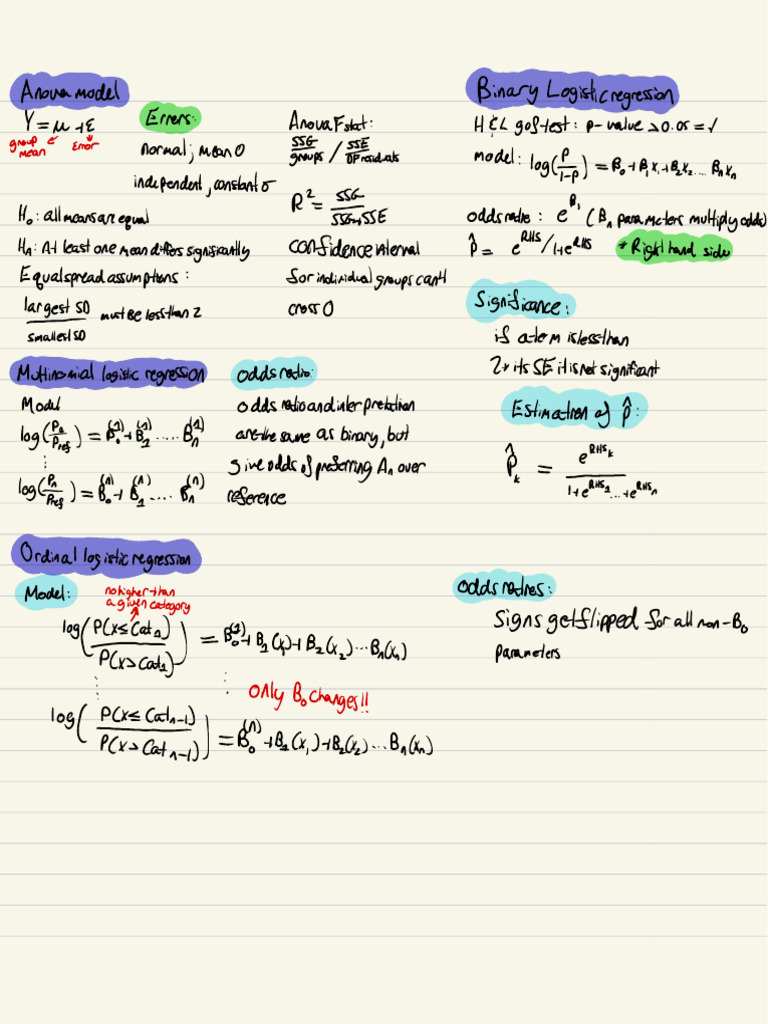 Anova model
Y = μ + ε
group mean
Error
Errors:
normal; mean 0
independent, constant σ
H₀: all means are equal
Hₐ: At least one mean differs significantly
Equal spread assumptions:
largest SD / smallest SD must be less than 2
Anova F stat:
SSG / groups / SSE / DF residuals
R² = SSG / SSG+SSE
confidence interval
for individual groups can't
cross 0
Binary Logistic regression
H & L gof test: p-value > 0.05 = √
model: log(P/1-P) = B₀ + B₁x₁ + B₂x₂ .... Bₙxₙ
odds ratio: e^B₁ (Bₙ parameters multiply odds)
p̂ = e^RHS / 1+e^RHS
* Right hand side
Significance:
if a term is less than
2* its SE it is not significant
Estimation of p̂:
p̂ₖ = e^RHSₖ / 1+e^RHS₁ ... +e^RHSₙ
Multinomial logistic regression
Model
log(P₁/P_ref) = B₀⁽¹⁾ + B₁⁽¹⁾ ..... Bₙ⁽¹⁾
⋮
log(Pₙ/P_ref) = B₀⁽ⁿ⁾ + B₁⁽ⁿ⁾ .... Bₙ⁽ⁿ⁾
odds ratio:
odds ratio and interpretation
are the same as binary, but
give odds of preferring Aₙ over
reference
Ordinal logistic regression
Model:
no higher than
a given category
log(P(x ≤ Cat₁) / P(x > Cat₁)) = B₀⁽¹⁾ + B₁(x₁) + B₂(x₂) ... Bₙ(xₙ)
⋮ ⋮
only B₀ changes!!
log(P(x ≤ Catₙ₋₁) / P(x > Catₙ₋₁)) = B₀⁽ⁿ⁾ + B₁(x₁) + B₂(x₂) ... Bₙ(xₙ)
odds ratios:
Signs get flipped for all non-B₀
parameters